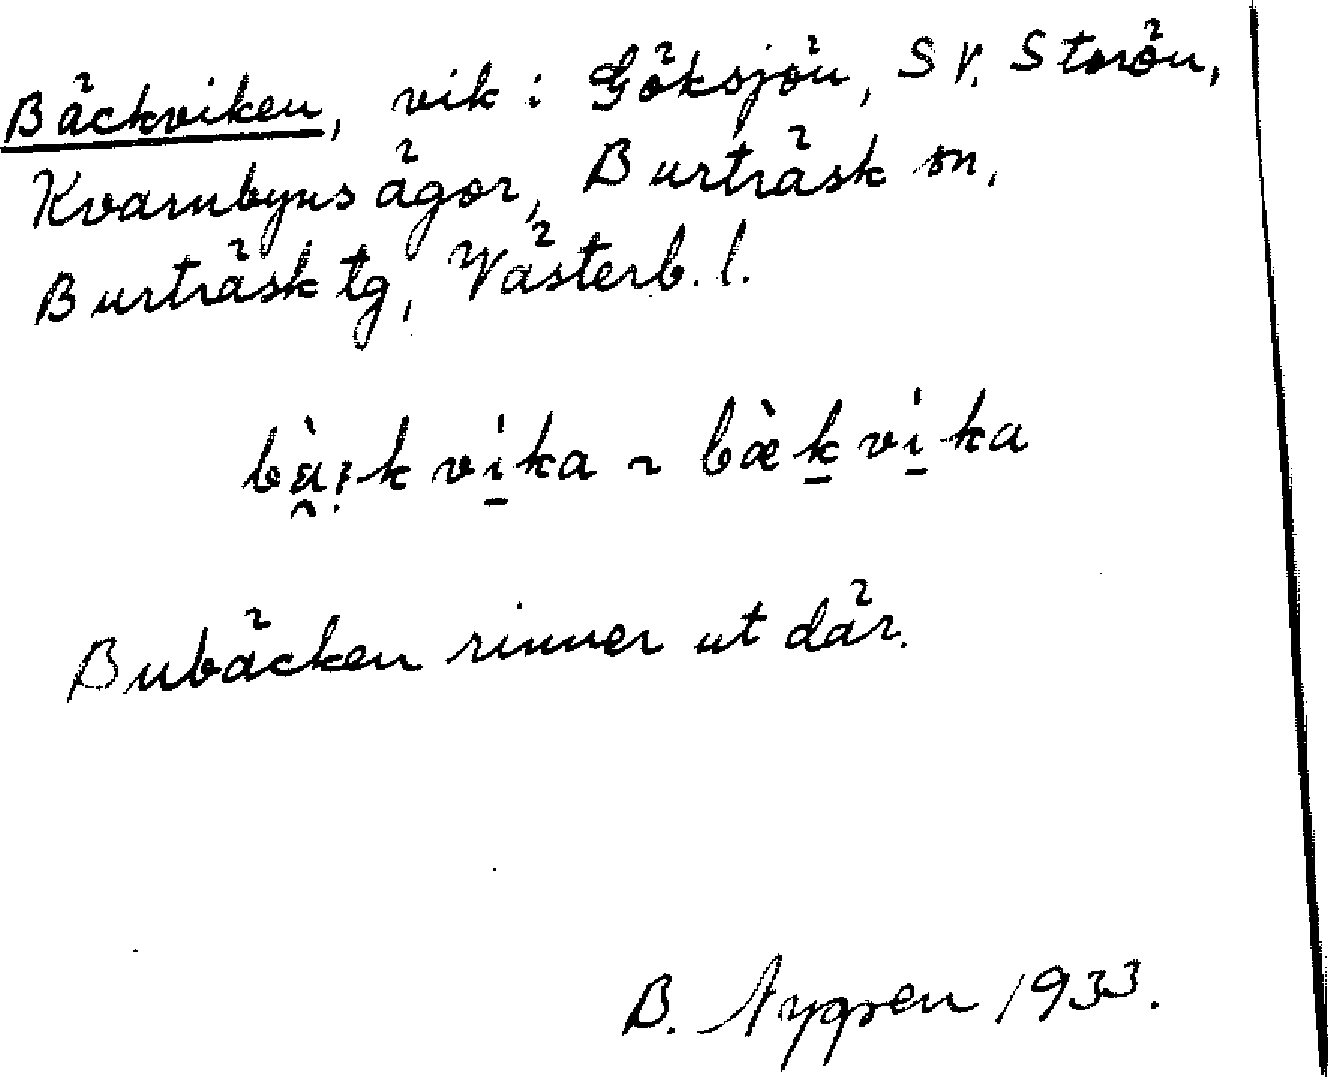 Bäckviken, vik i Göksjön, SV. Storön,
Kvarnbyns ägor, Burträsk sn,
Burträsk tg, Västerb. l.
bæ̀kvika
Bubäcken rinner ut där.
B. Nygren 1933.